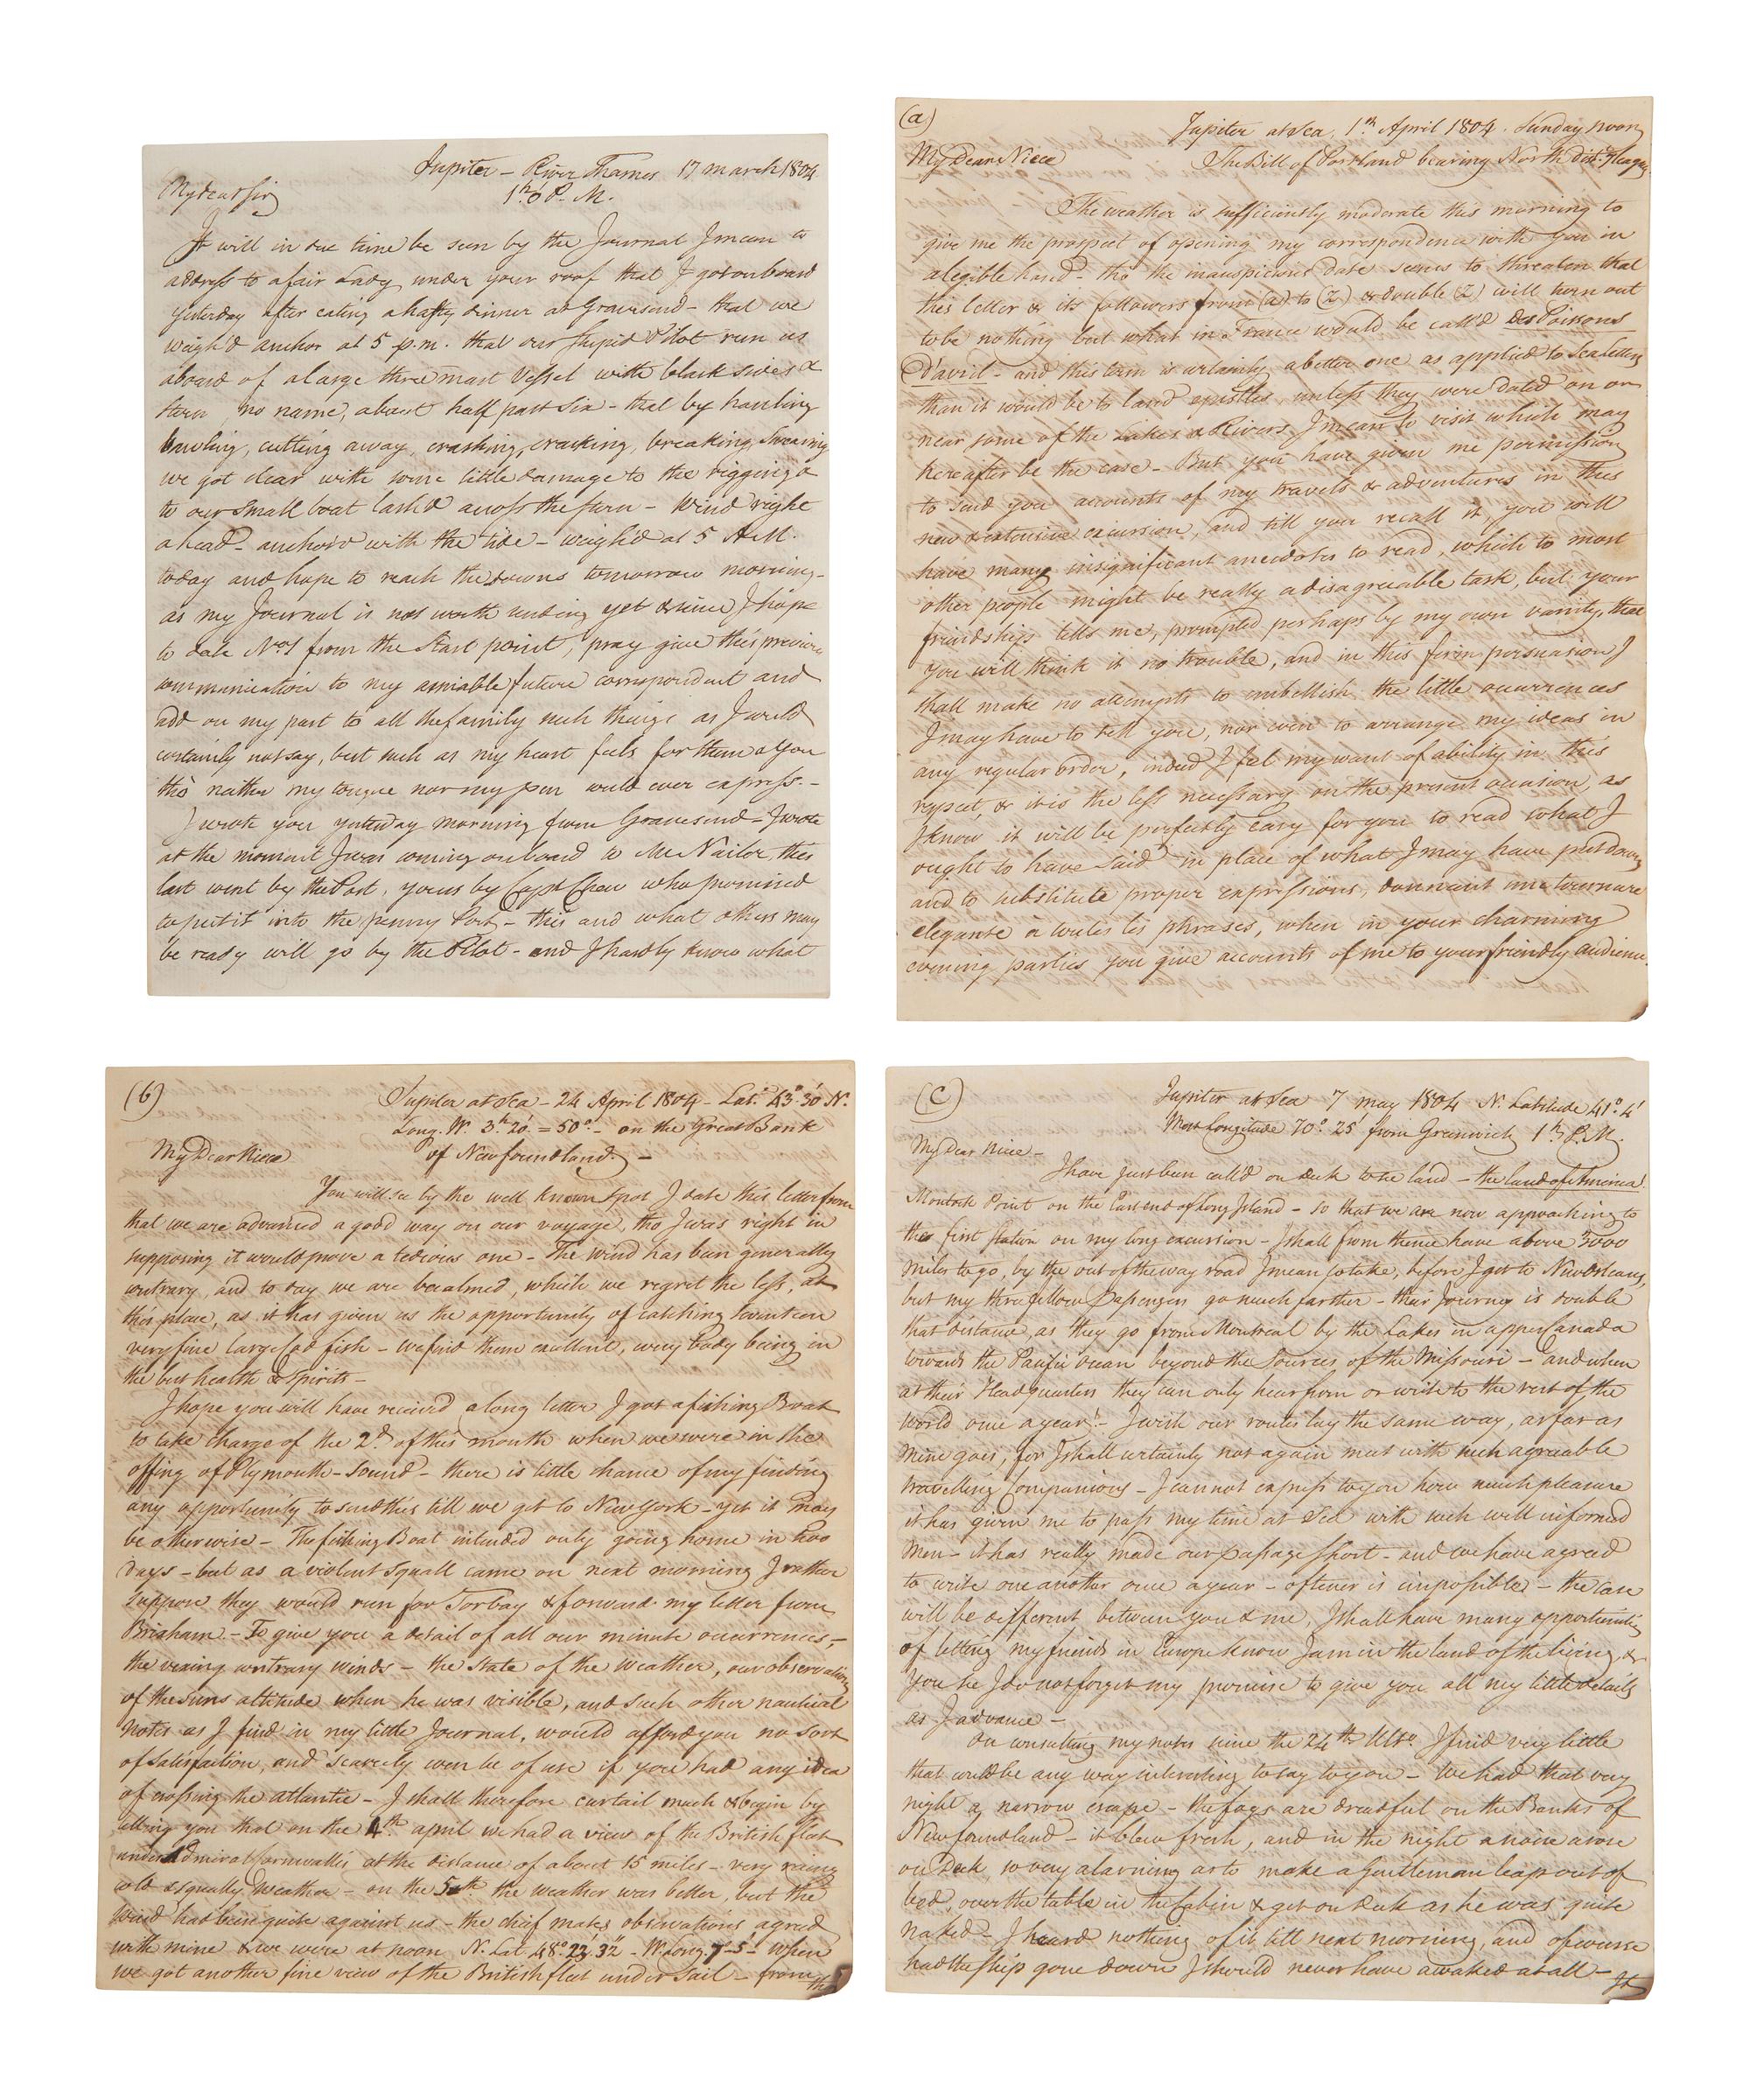 Jupiter - River Thames 17 March 1804
1h. 0' P. M.
My dear Sir
It will in due time be seen by the Journal I mean to
address to a fair Lady under your roof that I got on board
yesterday after eating a hasty dinner at Gravesend - that we
weigh'd anchor at 5 p.m. that our stupid Pilot run us
aboard of a large three mast Vessel with black sides &
stern, no name, about half past Six - that by hauling
bawling, cutting away, crashing, cracking, breaking, Swearing
we got clear with some little damage to the rigging &
to our small boat lash'd across the stern - Wind right
ahead - anchor'd with the tide - weigh'd at 5 A.M.
today and hope to reach the downs tomorrow morning -
as my Journal is not worth sending yet & since I hope
to date No. 1 from the Start point, pray give this previous
communication to my amiable future correspondent and
add on my part to all the family such things as I could
certainly not say, but such as my heart feels for them & you
tho' neither my tongue nor my pen could ever express. -
I wrote you yesterday morning from Gravesend - I wrote
at the moment I was coming on board to Mr Nailor, this
last went by the Post, yours by Capt Chew who promised
to put it into the penny Post - this and what others may
be ready will go by the Pilot - and I hardly know what
(a)
Jupiter at Sea, 1th April 1804. Sunday noon
My Dear Niece The Bill of Portland bearing North dist. leagues
The weather is sufficiently moderate this morning to
give me the prospect of opening my correspondence with you in
a legible hand - tho' the inauspicious date seems to threaten that
this letter & its followers from (a) to (Z) & double (Z) will turn out
to be nothing but what in France would be call'd des Poissons
d'avril - and this term is certainly a better one as applied to Sea letters
than it would be to land epistles unless they were dated on or
near some of the Lakes & Rivers I mean to visit which may
hereafter be the case - But you have given me permission
to send you accounts of my travels & adventures in this
new & extensive excursion, and till you recall it you will
have many insignificant anecdotes to read, which to most
other people might be really a disagreeable task, but your
friendship tells me, prompted perhaps by my own vanity, that
you will think it no trouble, and in this firm persuasion I
shall make no attempts to embellish the little occurrences
I may have to tell you, nor even to arrange my ideas in
any regular order, indeed I feel my want of ability in this
respect, & it is the less necessary on the present occasion, as
I know it will be perfectly easy for you to read what I
ought to have said in place of what I may have put down
and to substitute proper expressions, donnant une tournure
elegante a toutes les phrases, when in your charming
evening parties you give accounts of me to your friendly audience.
(b)
Jupiter at Sea - 24 April 1804 - Lat. 43° 30' N.
Long. W. 3h 20' = 50° - on the Great Bank
My Dear Niece of Newfoundland. -
You will see by the well known spot I date this letter from
that we are advanced a good way on our voyage, tho I was right in
supposing it would prove a tedious one - The wind has been generally
contrary, and to day we are becalmed, which we regret the less, at
this place, as it has given us the opportunity of catching seventeen
very fine large Cod fish - we find them excellent, every body being in
the best health & Spirits -
I hope you will have received a long letter I got a fishing Boat
to take charge of the 2d of this month when we were in the
offing of Plymouth-Sound - there is little chance of my finding
any opportunity to send this till we get to New York - yet it may
be otherwise - The fishing Boat intended only going home in two
days - but as a violent squall came on next morning I rather
suppose they would run for Torbay & forward my letter from
Brixham - To give you a detail of all our minute occurrences, -
the vexing contrary winds - the state of the Weather, our observations
of the Suns altitude when he was visible, and such other nautical
notes as I find in my little Journal, would afford you no sort
of satisfaction, and scarcely even be of use if you had any idea
of crossing the atlantic - I shall therefore curtail much & begin by
telling you that on the 4th april we had a view of the British fleet
under Admiral Cornwallis at the distance of about 15 miles - very rainy
cold & squally Weather - on the 5th the weather was better, but the
Wind had been quite against us - the chief mates observations agreed
with mine & we were at noon N. Lat 48° 23' 32" - W. Long. 7° 5' - when
we got another fine view of the British fleet under Sail - from
the
(c)
Jupiter at Sea 7 May 1804 N. Latitude 41° 4'
West Longitude 70° 25' from Greenwich 1h P.M.
My Dear Niece -
I have just been call'd on deck to see land - the land of America!
Montock Point on the East end of Long Island - so that we are now approaching to
the first station on my long excursion - I shall from thence have above 3000
miles to go, by the out of the way road I mean to take, before I get to New Orleans,
but my three fellow Passengers go much farther - their Journey is double
that distance, as they go from Montreal by the Lakes in upper Canada
towards the Pacific Ocean beyond the Sources of the Missouri - and when
at their Headquarters they can only hear from or write to the rest of the
World once a year! - I wish our routes lay the same way, as far as
mine goes, for I shall certainly not again meet with such agreeable
travelling Companions - I cannot express to you how much pleasure
it has given me to pass my time at Sea with such well informed
Men - it has really made our passage short - and we have agreed
to write one another once a year - oftener is impossible - the case
will be different between you & me, I shall have many opportunities
of letting my friends in Europe know I am in the land of the living, &
you see I do not forget my promise to give you all my little details
as I advance -
On consulting my notes since the 24th Ulto. I find very little
that could be any way interesting to say to you - We had that very
night a narrow escape - the fogs are dreadful on the Banks of
Newfoundland - it blew fresh, and in the night a noise arose
on Deck so very alarming as to make a Gentleman leap out of
bed, over the table in the Cabin & get on Deck as he was quite
naked - I heard nothing of it till next morning, and of course
had the ship gone down I should never have awaked at all -
It